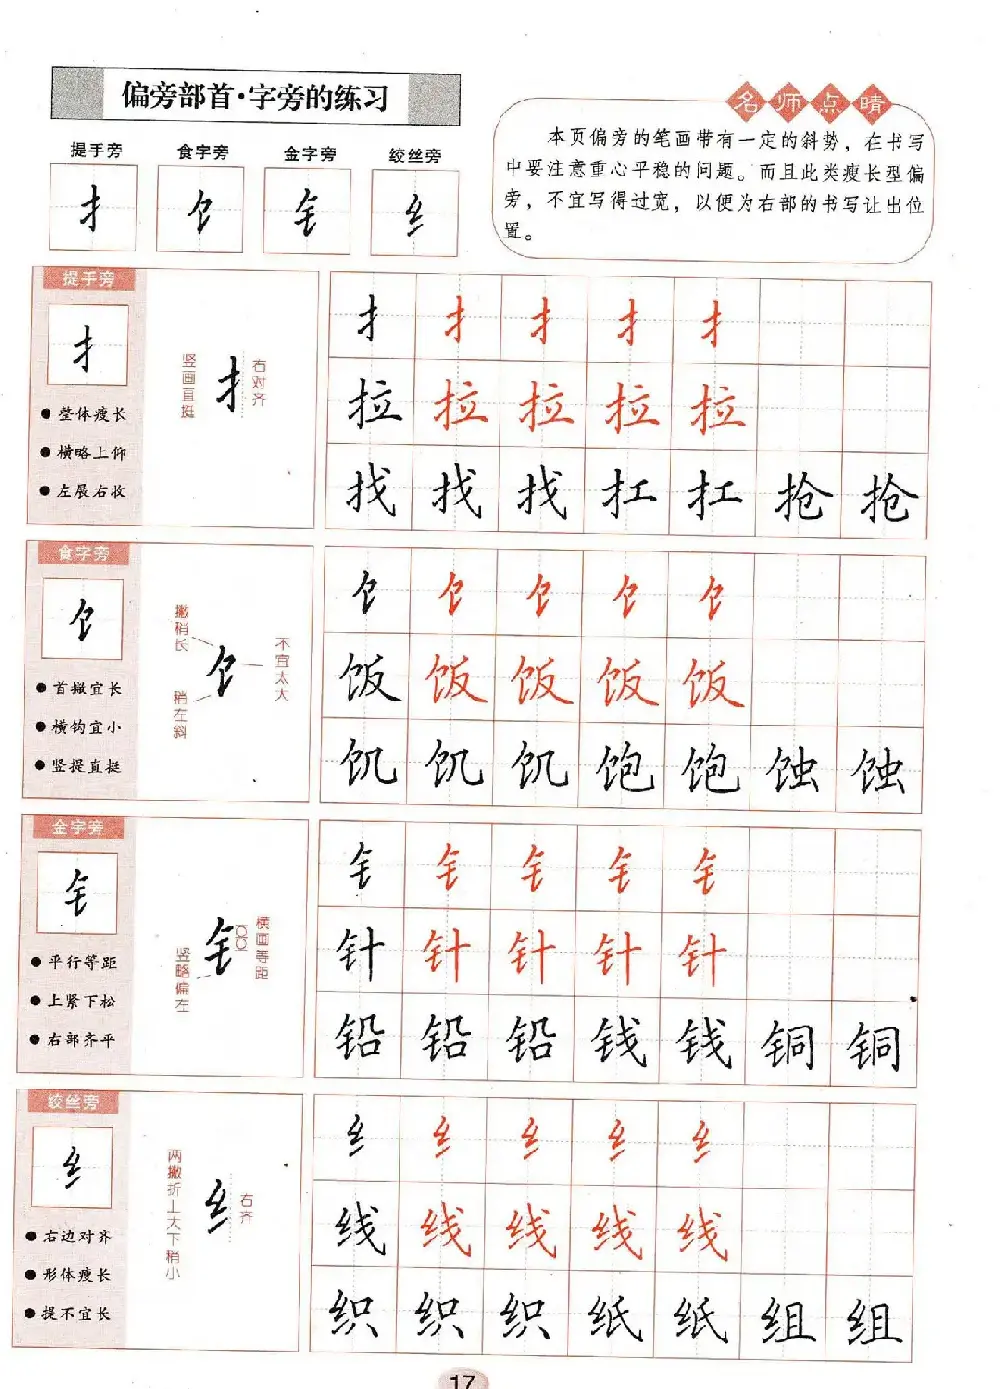 偏旁部首·字旁的练习
名师点晴
本页偏旁的笔画带有一定的斜势，在书写
中要注意重心平稳的问题。而且此类瘦长型偏
旁，不宜写得过宽，以便为右部的书写让出位
置。
提手旁 食字旁 金字旁 绞丝旁
扌 饣 钅 纟
提手旁
扌
整体瘦长
横略上仰
左展右收
竖画直挺
扌
右对齐
扌 扌 扌 扌 扌
拉 拉 拉 拉 拉
找 找 找 扛 扛 抢 抢
食字旁
饣
首撇宜长
横钩宜小
竖提直挺
撇稍长
稍左斜
饣
不宜太大
饣 饣 饣 饣 饣
饭 饭 饭 饭 饭
饥 饥 饥 饱 饱 蚀 蚀
金字旁
钅
平行等距
上紧下松
右部齐平
竖略偏左
钅
横画等距
钅 钅 钅 钅 钅
针 针 针 针 针
铅 铅 铅 钱 钱 铜 铜
绞丝旁
纟
右边对齐
形体瘦长
提不宜长
两撇折上大下稍小
纟
右齐
纟 纟 纟 纟 纟
线 线 线 线 线
织 织 织 纸 纸 组 组
17